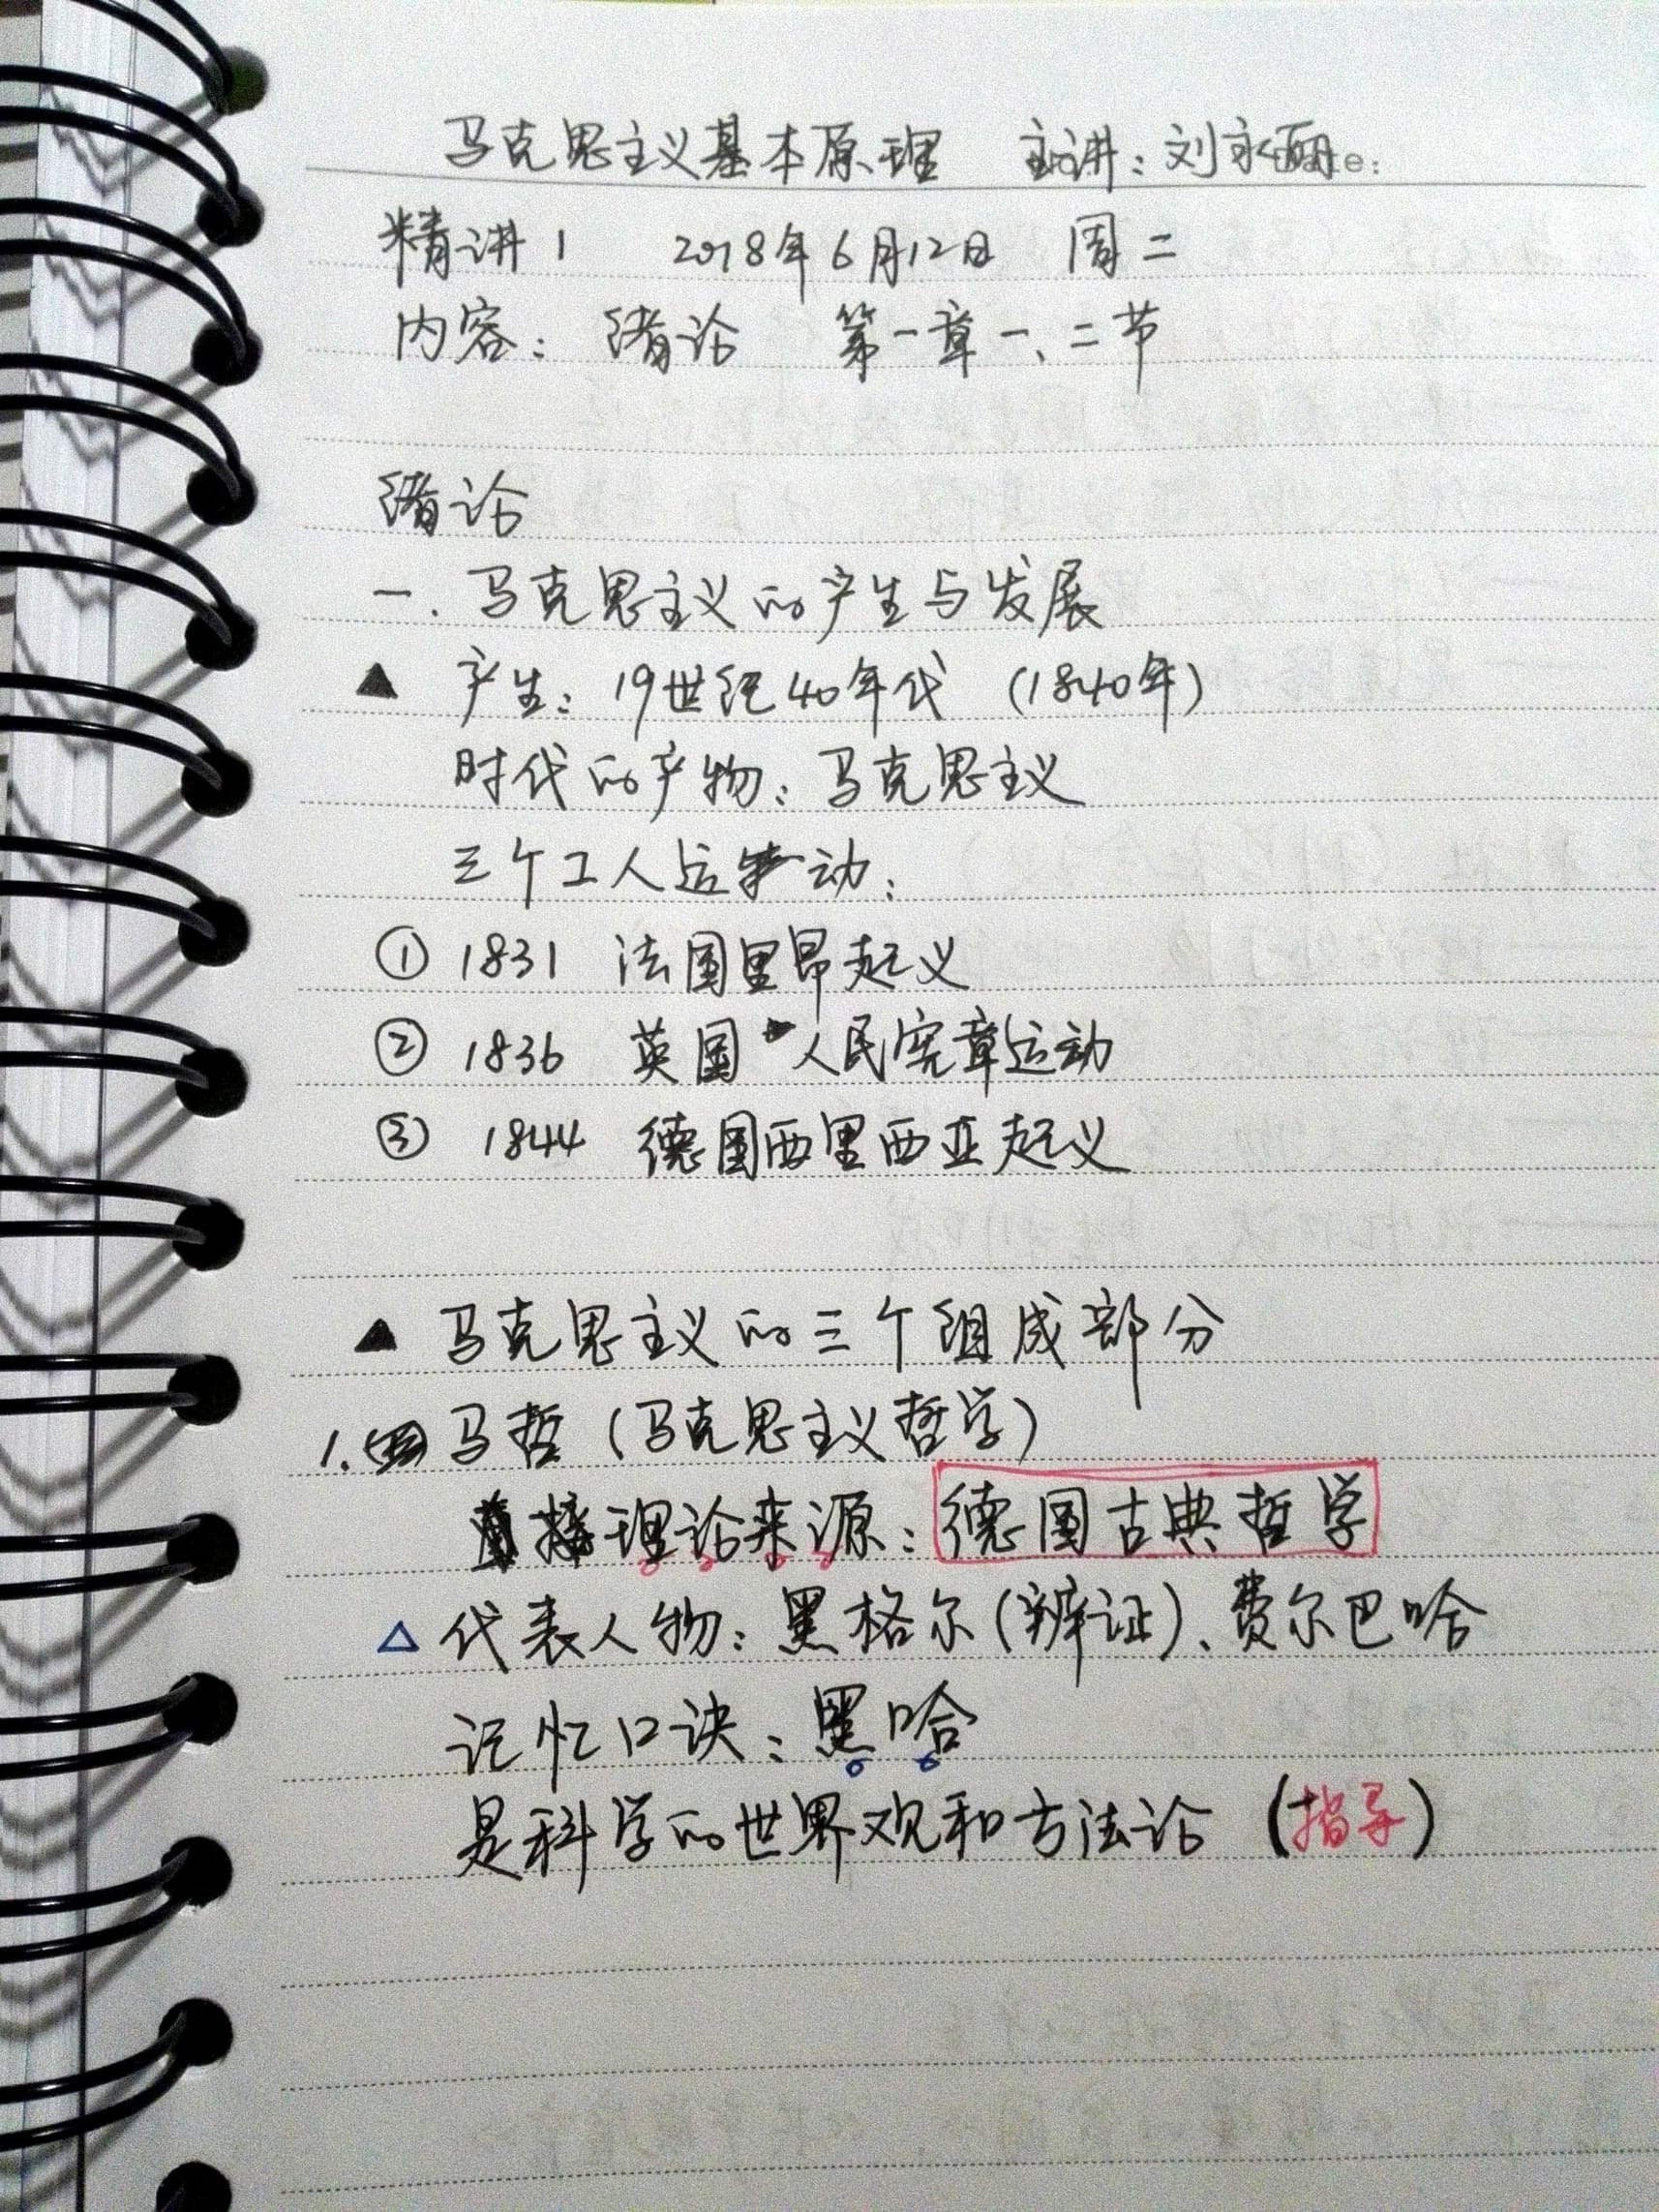 马克思主义基本原理 主讲：刘永丽
精讲1 2018年6月12日 周二
内容：绪论 第一章一、二节
绪论
一.马克思主义的产生与发展
▲ 产生：19世纪40年代 (1840年)
时代的产物：马克思主义
三个工人运动：
① 1831 法国里昂起义
② 1836 英国人民宪章运动
③ 1844 德国西里西亚起义
▲ 马克思主义的三个组成部分
1. 马哲（马克思主义哲学）
直接理论来源：德国古典哲学
△ 代表人物：黑格尔(辨证)、费尔巴哈
记忆口诀：黑哈
是科学的世界观和方法论（指导）